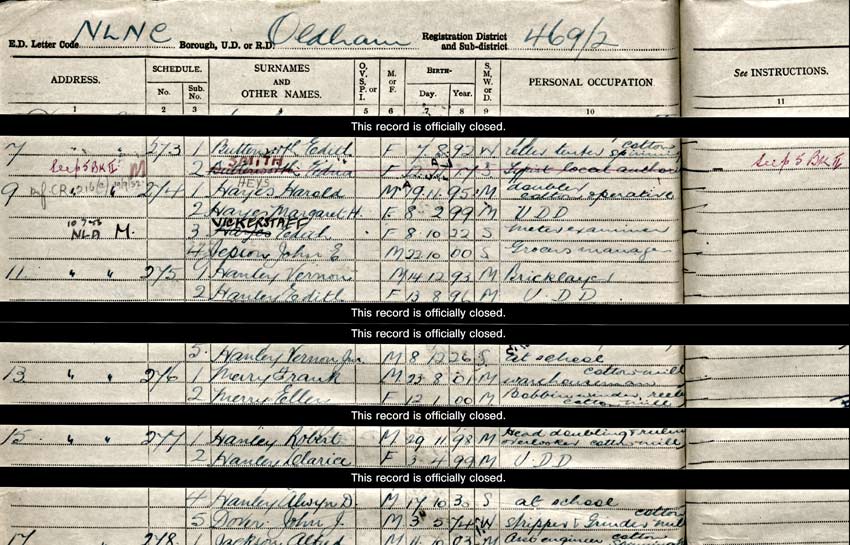 E.D. Letter Code NLNC Borough, U.D. or R.D. Oldham Registration District and Sub-district 469/2
ADDRESS. SCHEDULE. No. Sub. No. SURNAMES AND OTHER NAMES. O, V, S, P, or I. M. or F. BIRTH- Day. Year. S. M. W. or D. PERSONAL OCCUPATION. See INSTRUCTIONS.
1 2 3 4 5 6 7 8 9 10 11
This record is officially closed.
7 " " 273 1 Butterworth Edith F 7 8 92 W cotton spinning
See p 5 Bk II M 2 SMITH Butterworth Edna F S Typist local author See p 5 Bk II
9 " " 274 1 HEYS Hayes Harold M 9 11 95 M doubler cotton operative
2 Hayes Margaret H. F 8 2 99 M U D D
10.7.43 NLA M. 3 VICKERSTAFF Hayes Edith F 8 10 22 S Meter examiner
4 Jepson John E M 22 10 00 S Grocers manager
11 " " 275 1 Hanley Vernon M 14 12 93 M Bricklayer
2 Hanley Edith F 13 8 96 M U.D D
This record is officially closed.
This record is officially closed.
5 Hanley Vernon Jnr. M 8 12 26 S at school
13 " " 276 1 Merry Frank M 23 8 01 M cotton mill warehouseman
2 Merry Ellen F 12 1 00 M Bobbin winder, cotton mill
This record is officially closed.
15 " " 277 1 Hanley Robert M 29 11 98 M Head doubling & overlooker cotton mill
2 Hanley Clarice F 3 4 99 M U D D
This record is officially closed.
4 Hanley Alwyn D. M 17 10 30 S at school
5 John J. M 3 5 74 W Stripper & Grinder cotton mill
17 278 1 Jackson Alfred M 11 10 03 M engineer cotton